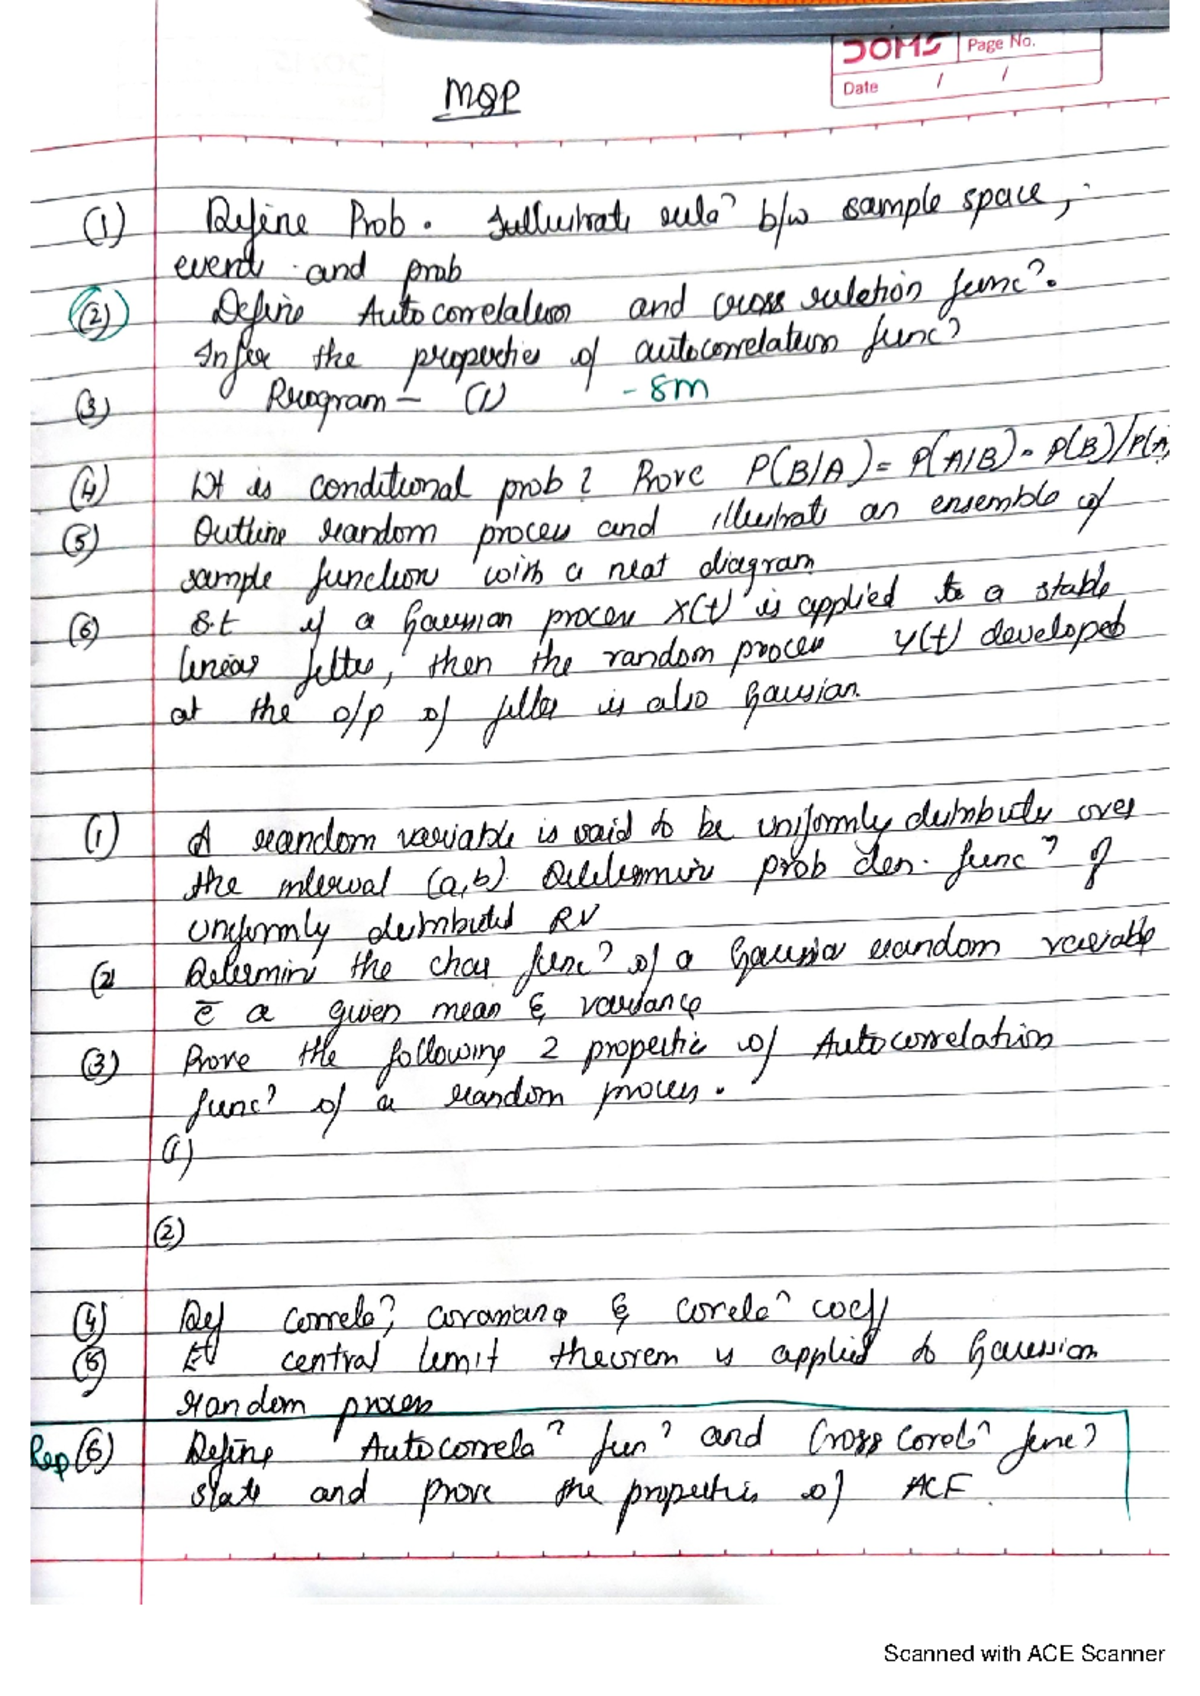 DOMS Page No.
Date / /
MQP
(1) Define Prob. Illustrate rela? b/w sample space,
event and prob
(2) Define Autocorrelation and cross relation func?.
Infer the properties of autocorrelation func?
(3) Program - (1) - 8m
(4) Wt is conditional prob? Prove P(B/A) = P(A/B) . P(B)/P(A)
(5) Outline random process and illustrate an ensemble of
sample function with a neat diagram
(6) S.t if a Gaussian process X(t) is applied to a stable
linear filter, then the random process Y(t) developed
at the o/p of filter is also Gausian.
(1) A random variable is said to be uniformly distributed over
the interval (a,b). Determine prob den. func? of
uniformly distributed RV
(2 Determine the char func? of a Gaussian random variable
c̄ a given mean & variance
(3) Prove the following 2 properties of Autocorrelation
func? of a random process.
(1)
(2)
(4) Def Correla?, covariance & correla? coeff
(5) central limit theorem is applied to Gaussian
random process
Rep (6) Define Autocorrela? fun? and Cross Correl? func?
state and prove the properties of ACF.
Scanned with ACE Scanner